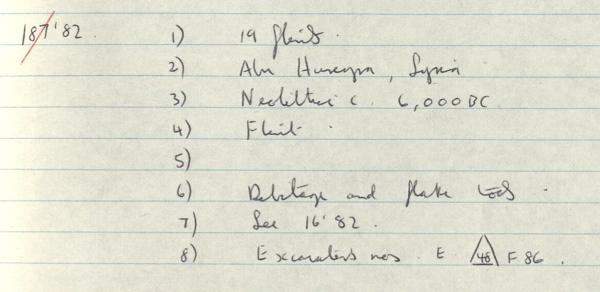 187'82. 1) 19 flints.
2) Abu Hureyra, Syria
3) Neolithic c. 6,000 BC
4) Flint.
5)
6) Debitage and flake tools.
7) See 16'82.
8) Excavators nos. E. 48 F 86.